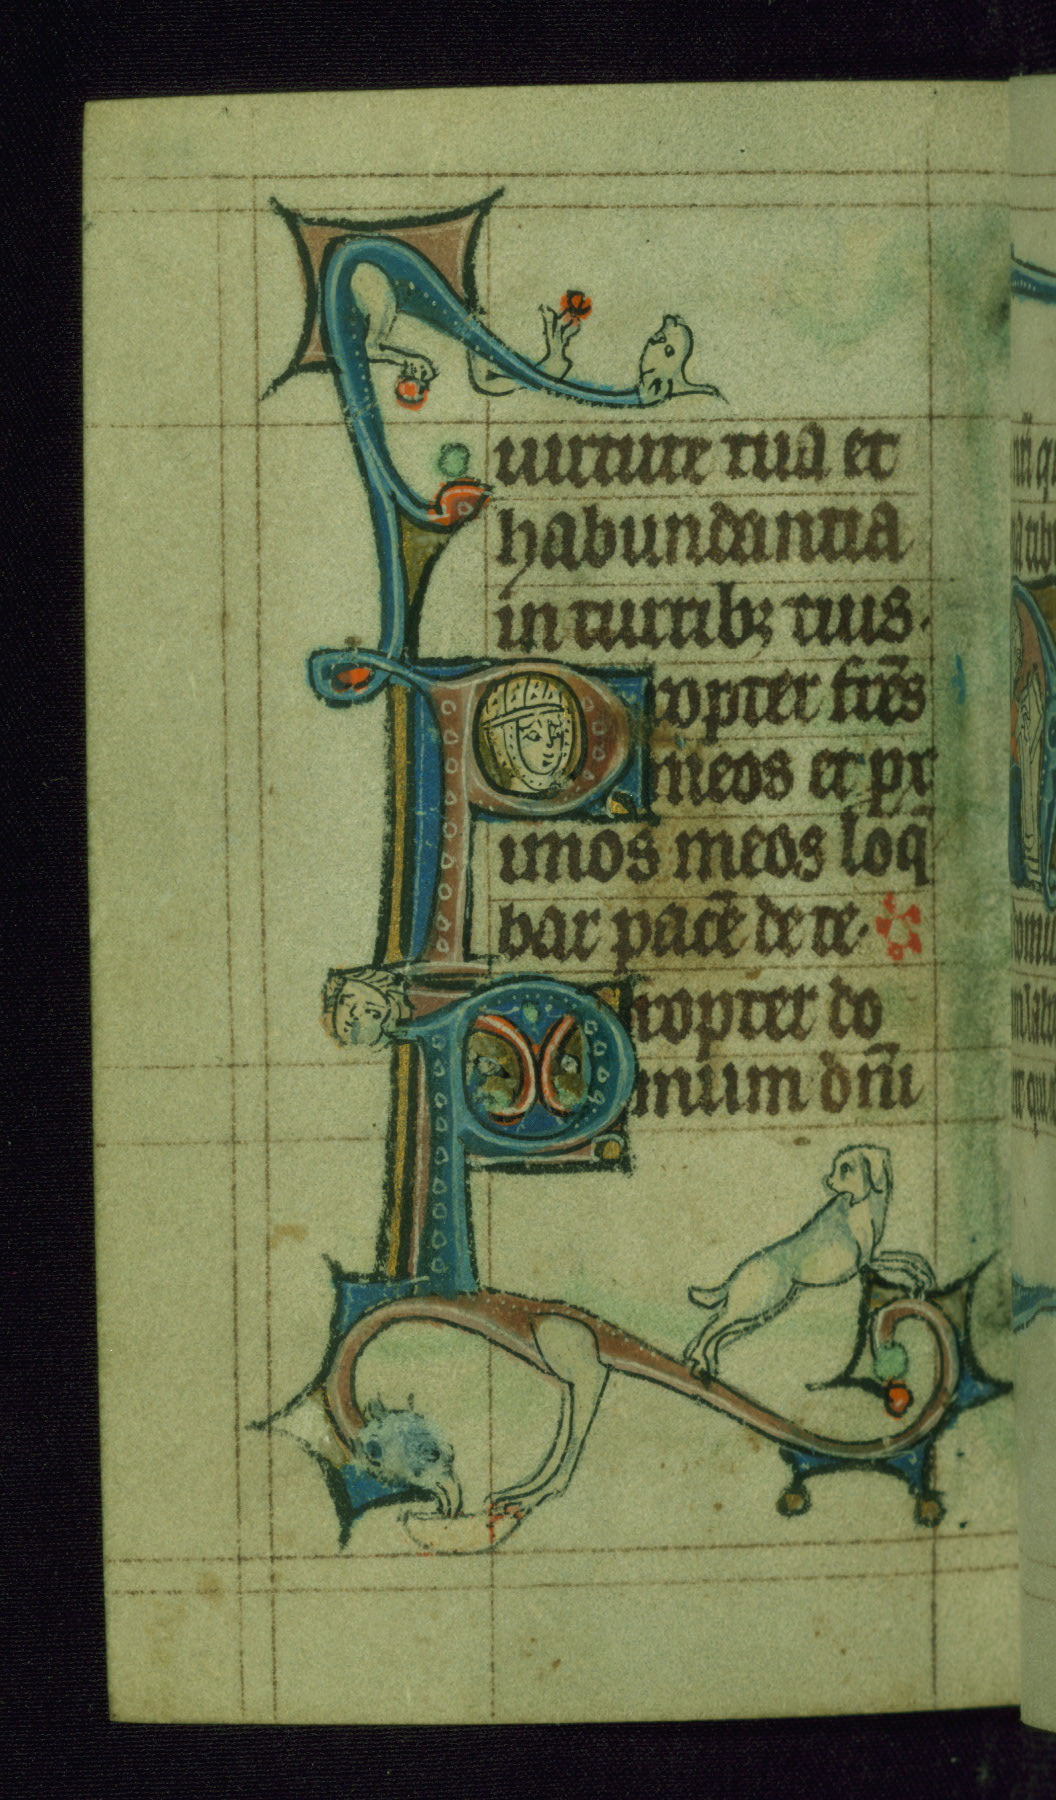 uirtute tua et
habundantia
in turribꝫ tuis.
Propter frēs
meos et pr
imos meos loq̄
bar pacē de te.
Propter do
mum dn̄i